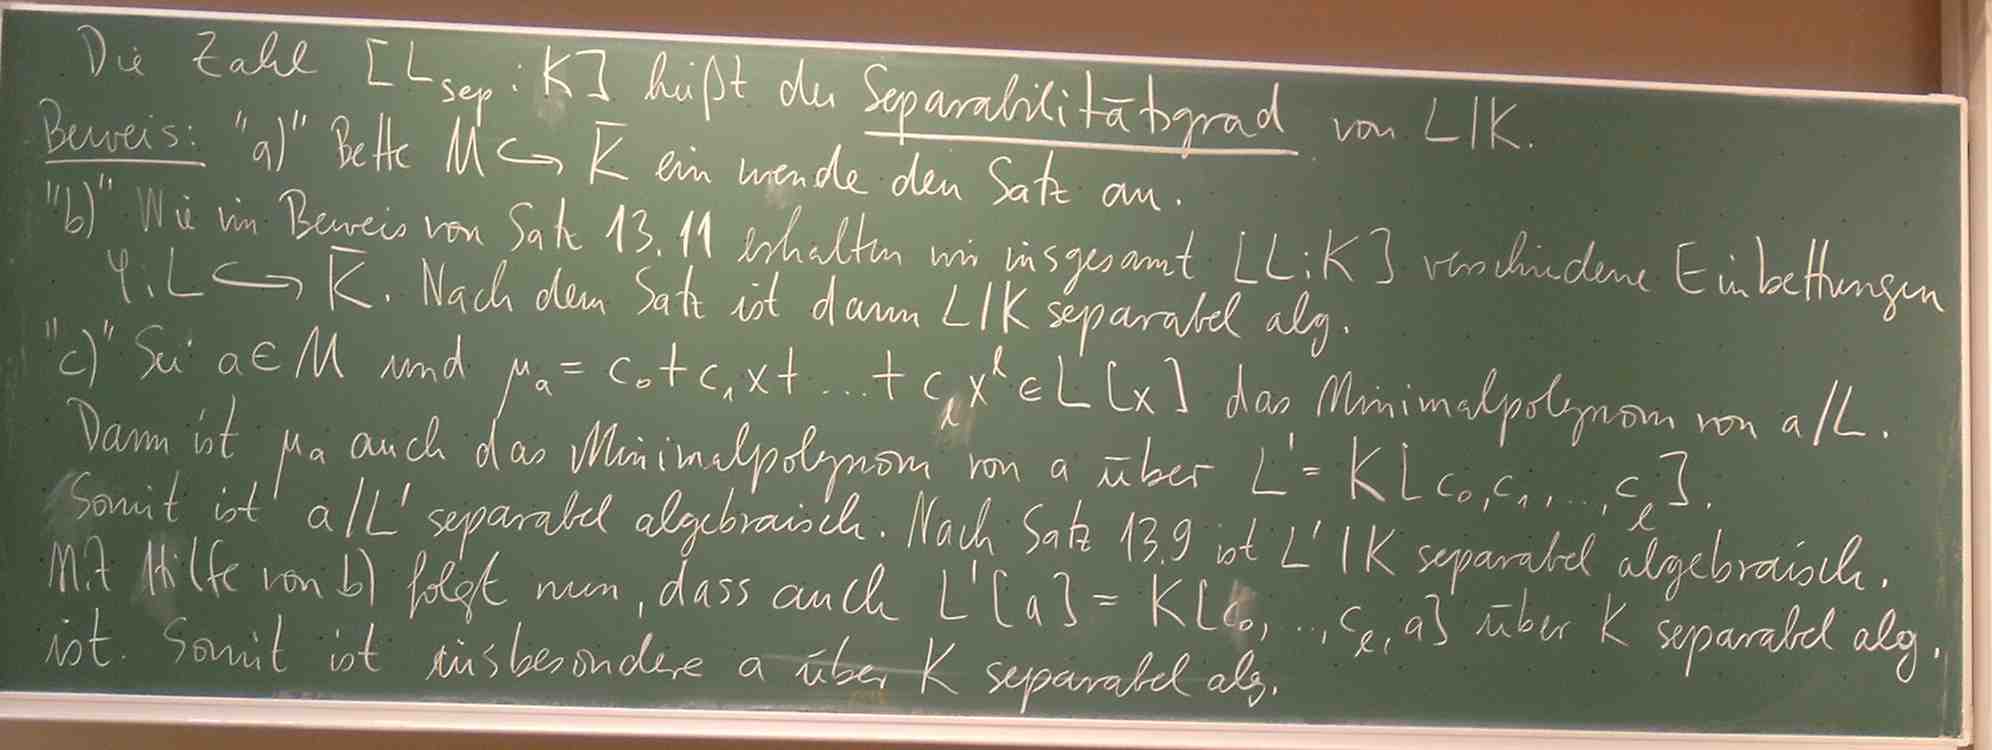 Die Zahl [L_sep : K] heißt der Separabilitätsgrad von L|K.
Beweis: "a)" Bette M ↪ K̄ ein wende den Satz an.
"b)" Wie im Beweis von Satz 13.11 erhalten wir insgesamt [L:K] verschiedene Einbettungen
φ: L ↪ K̄. Nach dem Satz ist dann L/K separabel alg.
"c)" Sei a ∈ M und μ_a = c_0 + c_1 x + ... + c_l x^l ∈ L[x] das Minimalpolynom von a/L.
Dann ist μ_a auch das Minimalpolynom von a über L' = K[c_0, c_1, ..., c_l].
Somit ist a/L' separabel algebraisch. Nach Satz 13.9 ist L'|K separabel algebraisch.
Mit Hilfe von b) folgt nun, dass auch L'[a] = K[c_0, ..., c_l, a] über K separabel alg.
ist. Somit ist insbesondere a über K separabel alg.